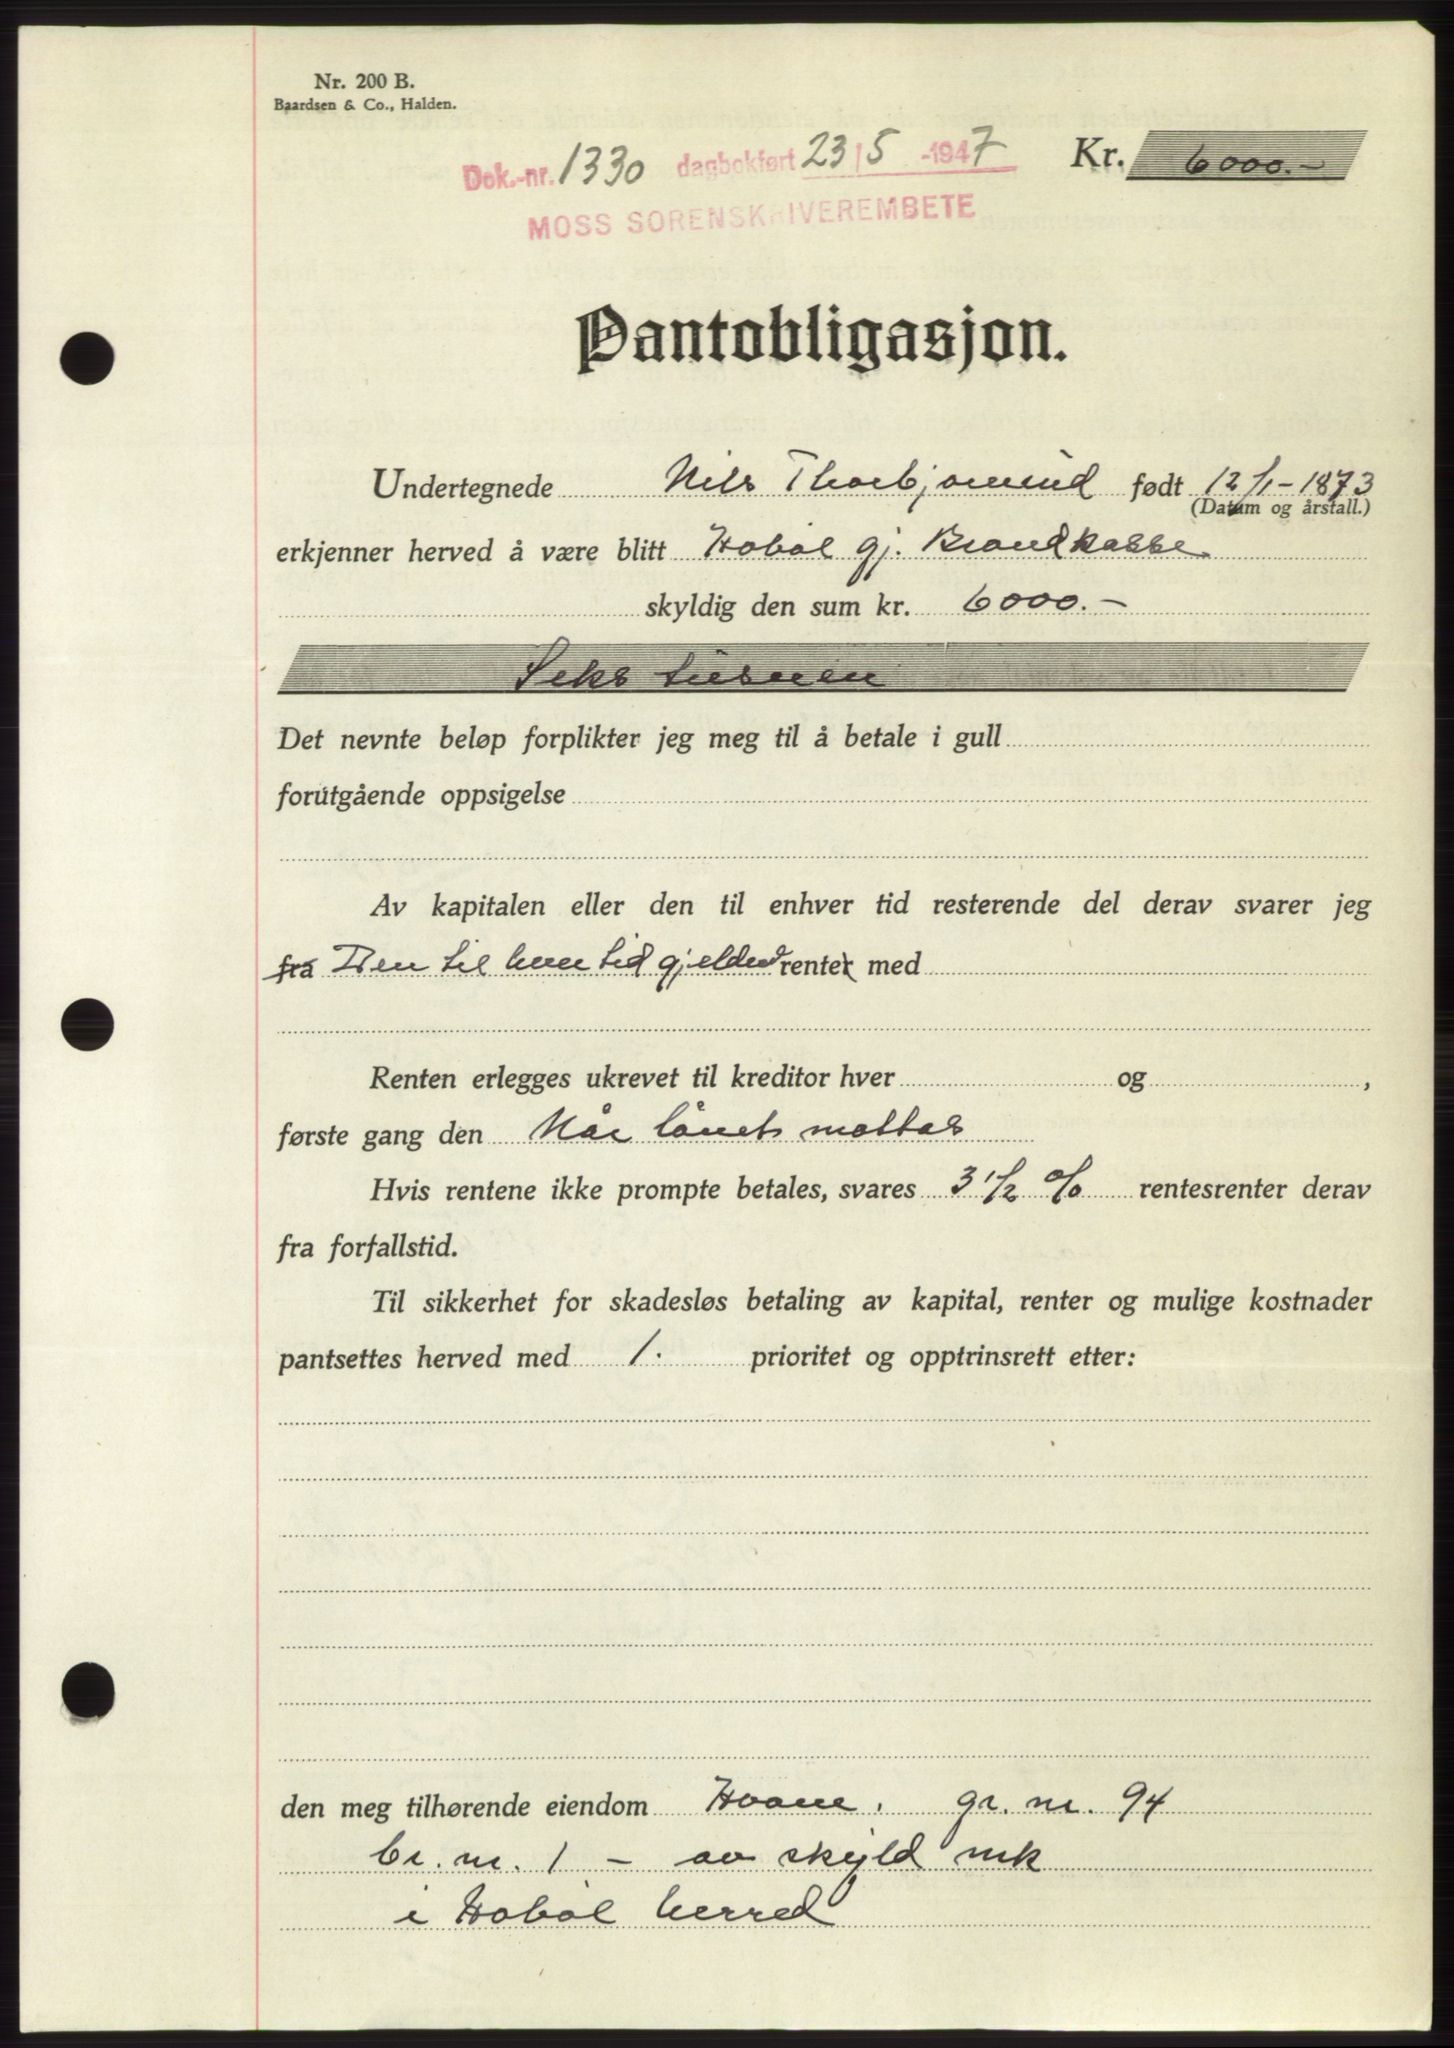 Nr. 200 B.
Baardsen & Co., Halden.
Dok.-nr. 1330 dagbokført 23/5 -1947
Kr. 6000.-
MOSS SORENSKRIVEREMBETE
Pantobligasjon.
Undertegnede Nils Thorbjørnrud født 12/1-1873
(Datum og årstall.)
erkjenner herved å være blitt Hobøl gj. Brandkasse
skyldig den sum kr. 6000.-
Seks tusnen
Det nevnte beløp forplikter jeg meg til å betale i gull
forutgående oppsigelse
Av kapitalen eller den til enhver tid resterende del derav svarer jeg
fra Den til hver tid gjeldend renter med
Renten erlegges ukrevet til kreditor hver og ,
første gang den Når lånet mottas
Hvis rentene ikke prompte betales, svares 3 1/2 % rentesrenter derav
fra forfallstid.
Til sikkerhet for skadesløs betaling av kapital, renter og mulige kostnader
pantsettes herved med 1. prioritet og opptrinsrett etter:
den meg tilhørende eiendom gr. nr. 94
br. nr. 1 - av skyld mk
i Hobøl herred